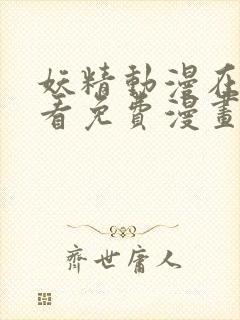 妖精動漫在
看免費漫畫
齊世庸人